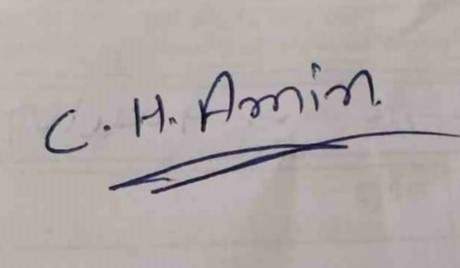 C. H. Amin.